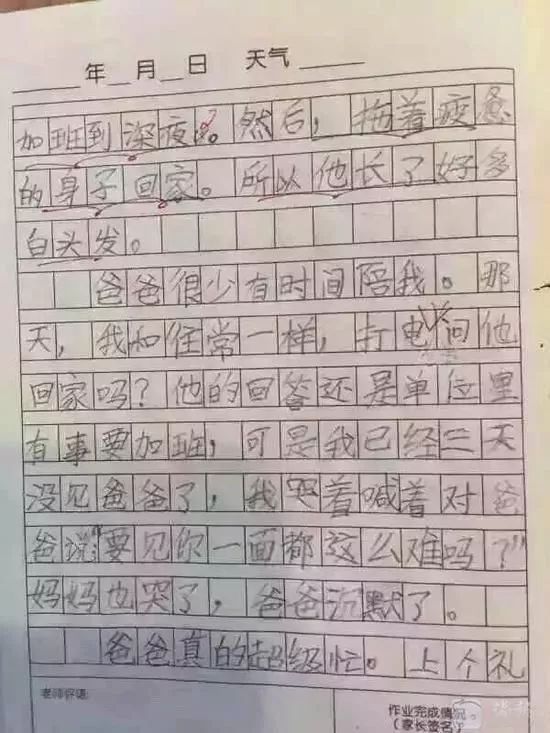 年 月 日 天气
加班到深夜。然后，拖着疲惫
的身子回家。所以他长了好多
白头发。
爸爸很少有时间陪我。那
天，我和往常一样，打电问他
回家吗？他的回答还是单位里
有事要加班，可是我已经三天
没见爸爸了，我哭着喊着对爸
爸说“要见你一面都这么难吗？”
妈妈也哭了，爸爸沉默了。
爸爸真的超级忙。上个礼
老师评语：
作业完成情况
（家长签名）